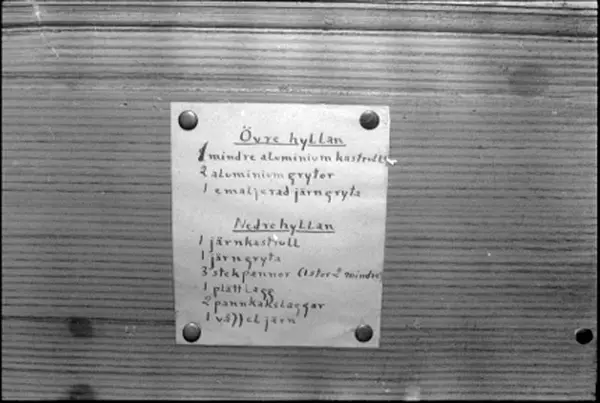 Övre hyllan
1 mindre aluminium kastrull
2 aluminium grytor
1 emaljerad järngryta
Nedre hyllan
1 järnkastrull
1 järngryta
3 stekpannor (1 stor 2 mindre)
1 plättlagg
2 pannkakslaggar
1 våffeljärn